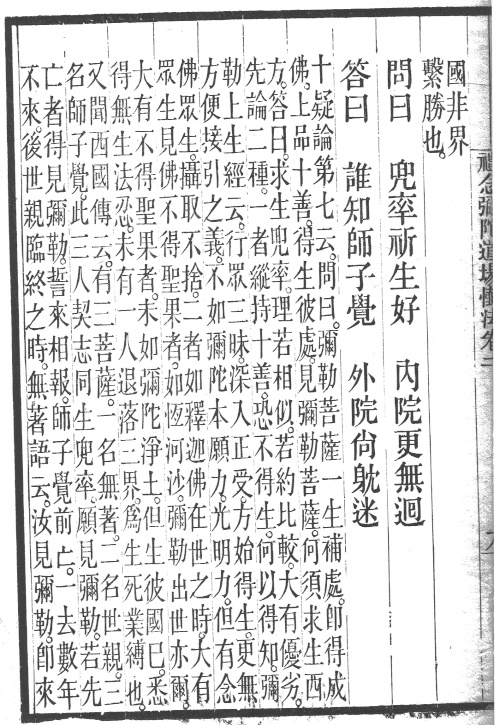 禮念彌陀道場懺法卷二
國非界
繫勝也。
問曰　兜率祈生好　內院更無迴
答曰　誰知師子覺　外院尙躭迷
十疑論第七云。問曰。彌勒菩薩一生補處。卽得成
佛。上品十善。得生彼處。見彌勒菩薩。何須求生西
方。答曰。求生兜率。理若相似。若約比較。大有優劣。
先論二種。一者縱持十善。恐不得生。何以得知。彌
勒上生經云。行眾三昧。深入正受。方始得生。更無
方便接引之義。不如彌陀本願力。光明力。但有念
佛眾生。攝取不捨。二者如釋迦佛在世之時。大有
眾生見佛不得聖果者。如恆河沙。彌勒出世亦爾。
大有不得聖果者。未如彌陀淨土。但生彼國已。悉
得無生法忍。未有一人退落三界。爲生死業縛也。
又聞西國傳云。有三菩薩。一名無著。二名世親。三
名師子覺。此三人契志同生兜率。願見彌勒。若先
亡者得見彌勒。誓來相報。師子覺前亡。一去數年
不來。後世親臨終之時。無著語云。汝見彌勒。卽來